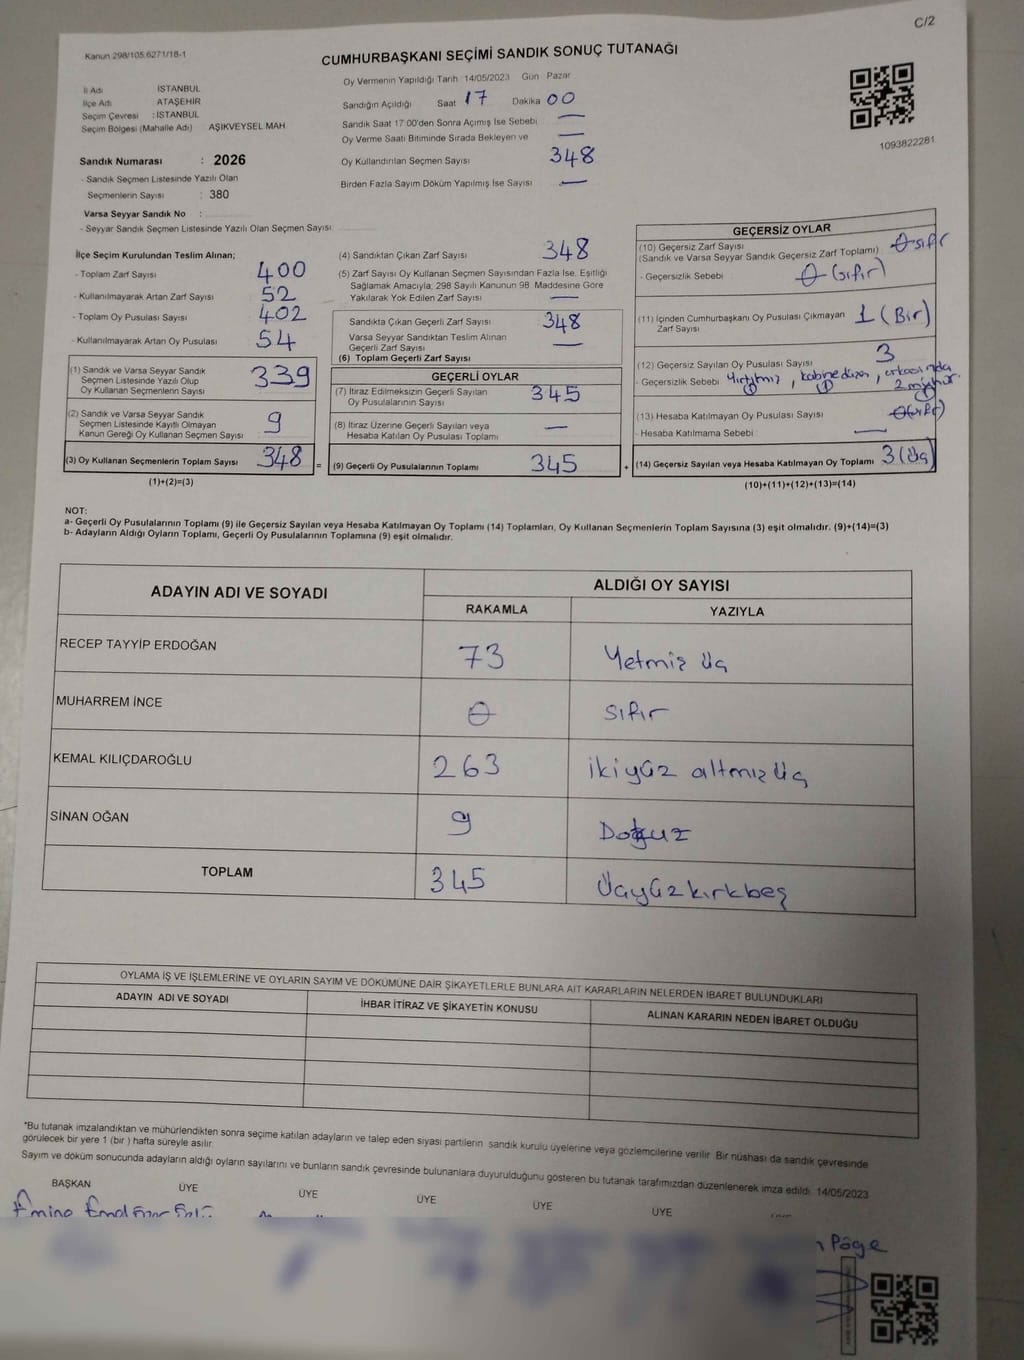 C/2
Kanun 298/105.6271/18-1
CUMHURBAŞKANI SEÇİMİ SANDIK SONUÇ TUTANAĞI
İl Adı İSTANBUL
İlçe Adı ATAŞEHİR
Seçim Çevresi : İSTANBUL
Seçim Bölgesi (Mahalle Adı) AŞIKVEYSEL MAH
Sandık Numarası : 2026
- Sandık Seçmen Listesinde Yazılı Olan
Seçmenlerin Sayısı : 380
Varsa Seyyar Sandık No :
- Seyyar Sandık Seçmen Listesinde Yazılı Olan Seçmen Sayısı
Oy Vermenin Yapıldığı Tarih 14/05/2023 Gün Pazar
Sandığın Açıldığı Saat 17 Dakika 00
Sandık Saat 17:00'den Sonra Açımış İse Sebebi —
Oy Verme Saati Bitiminde Sırada Bekleyen ve —
Oy Kullandırılan Seçmen Sayısı 348
Birden Fazla Sayım Döküm Yapılmış İse Sayısı —
1093822281
İlçe Seçim Kurulundan Teslim Alınan;
- Toplam Zarf Sayısı 400
- Kullanılmayarak Artan Zarf Sayısı 52
- Toplam Oy Pusulası Sayısı 402
- Kullanılmayarak Artan Oy Pusulası 54
(1) Sandık ve Varsa Seyyar Sandık
Seçmen Listesinde Yazılı Olup
Oy Kullanan Seçmenlerin Sayısı 339
(2) Sandık ve Varsa Seyyar Sandık
Seçmen Listesinde Kayıtlı Olmayan
Kanun Gereği Oy Kullanan Seçmen Sayısı 9
(3) Oy Kullanan Seçmenlerin Toplam Sayısı 348 =
(1)+(2)=(3)
(4) Sandıktan Çıkan Zarf Sayısı 348
(5) Zarf Sayısı Oy Kullanan Seçmen Sayısından Fazla İse, Eşitliği
Sağlamak Amacıyla, 298 Sayılı Kanunun 98. Maddesine Göre
Yakılarak Yok Edilen Zarf Sayısı —
Sandıkta Çıkan Geçerli Zarf Sayısı 348
Varsa Seyyar Sandıktan Teslim Alınan
Geçerli Zarf Sayısı —
(6) Toplam Geçerli Zarf Sayısı
GEÇERLİ OYLAR
(7) İtiraz Edilmeksizin Geçerli Sayılan
Oy Pusulalarının Sayısı 345
(8) İtiraz Üzerine Geçerli Sayılan veya
Hesaba Katılan Oy Pusulası Toplamı —
(9) Geçerli Oy Pusulalarının Toplamı 345 +
GEÇERSİZ OYLAR
(10) Geçersiz Zarf Sayısı
(Sandık ve Varsa Seyyar Sandık Geçersiz Zarf Toplamı) 0 sıfır
- Geçersizlik Sebebi 0 (sıfır)
(11) İçinden Cumhurbaşkanı Oy Pusulası Çıkmayan
Zarf Sayısı 1 (Bir)
(12) Geçersiz Sayılan Oy Pusulası Sayısı 3
- Geçersizlik Sebebi yırtılmış 1, kabine düzen 1, arkasında
2 mühür. 1
(13) Hesaba Katılmayan Oy Pusulası Sayısı 0 (sıfır)
- Hesaba Katılmama Sebebi —
(14) Geçersiz Sayılan veya Hesaba Katılmayan Oy Toplamı 3 (üç)
(10)+(11)+(12)+(13)=(14)
NOT:
a- Geçerli Oy Pusulalarının Toplamı (9) ile Geçersiz Sayılan veya Hesaba Katılmayan Oy Toplamı (14) Toplamları, Oy Kullanan Seçmenlerin Toplam Sayısına (3) eşit olmalıdır. (9)+(14)=(3)
b- Adayların Aldığı Oyların Toplamı, Geçerli Oy Pusulalarının Toplamına (9) eşit olmalıdır.
ADAYIN ADI VE SOYADI ALDIĞI OY SAYISI
RAKAMLA YAZIYLA
RECEP TAYYİP ERDOĞAN 73 Yetmiş üç
MUHARREM İNCE 0 sıfır
KEMAL KILIÇDAROĞLU 263 ikiyüz altmışüç
SİNAN OĞAN 9 Dokuz
TOPLAM 345 üçyüzkırkbeş
OYLAMA İŞ VE İŞLEMLERİNE VE OYLARIN SAYIM VE DÖKÜMÜNE DAİR ŞİKAYETLERLE BUNLARA AİT KARARLARIN NELERDEN İBARET BULUNDUKLARI
ADAYIN ADI VE SOYADI İHBAR İTİRAZ VE ŞİKAYETİN KONUSU ALINAN KARARIN NEDEN İBARET OLDUĞU
*Bu tutanak imzalandıktan ve mühürlendikten sonra seçime katılan adayların ve talep eden siyasi partilerin sandık kurulu üyelerine veya gözlemcilerine verilir. Bir nüshası da sandık çevresinde
görülecek bir yere 1 (bir) hafta süreyle asılır.
Sayım ve döküm sonucunda adayların aldığı oyların sayılarını ve bunların sandık çevresinde bulunanlara duyurulduğunu gösteren bu tutanak tarafımızdan düzenlenerek imza edildi. 14/05/2023
BAŞKAN ÜYE ÜYE ÜYE ÜYE ÜYE